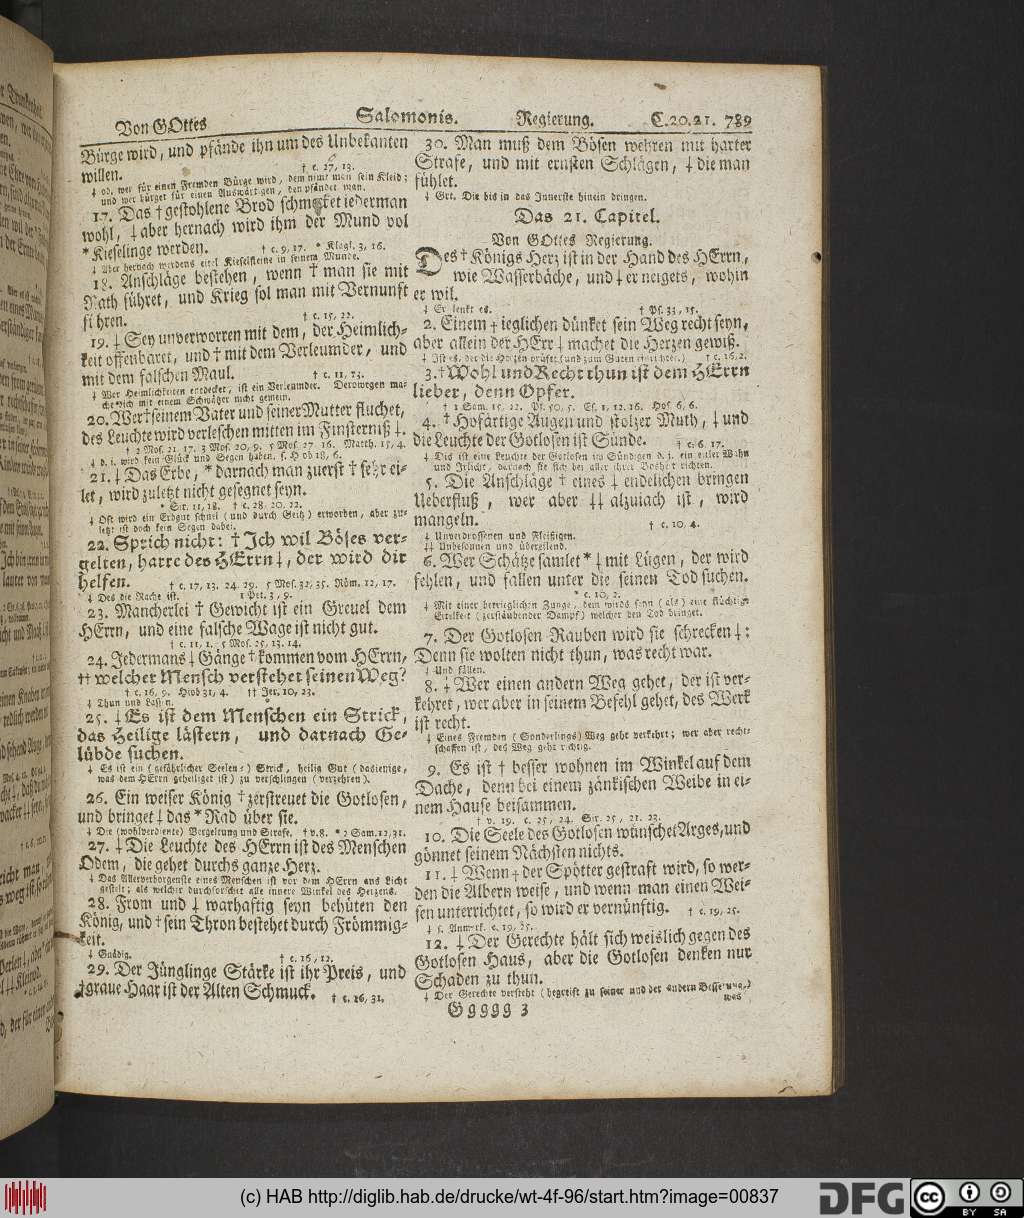 Von GOttes Salomonis. Regierung. C.20.21. 789
Bürge wird, und pfände ihn um des Unbekanten
willen. † c. 27, 13.
‡ od. wer für einen Fremden Bürge wird, dem nimt man sein Kleid;
und wer bürget für einen Auswärtigen, den pfändet man.
17. Das † gestohlene Brod schmecket iederman
wohl, ‡ aber hernach wird ihm der Mund vol
* Kieselinge werden. † c. 9, 17. * Klagl. 3, 16.
‡ Aber hernach werdens eitel Kieselsteine in seinem Munde.
18. Anschläge bestehen, wenn † man sie mit
Rath führet, und Krieg sol man mit Vernunft
führen. † c. 15, 22.
19. ‡ Sey unverworren mit dem, der Heimlich-
keit offenbaret, und † mit dem Verleumder, und
mit dem falschen Maul. † c. 11, 13.
‡ Wer Heimlichkeiten entdecket, ist ein Verleumder. Derowegen ma-
che dich mit einem Schwätzer nicht gemein.
20. Wer † seinem Vater und seiner Mutter fluchet,
des Leuchte wird verleschen mitten im Finsterniß ‡.
† 2 Mos. 21, 17. 3 Mos. 20, 9. 5 Mos. 27, 16. Matth. 15, 4.
‡ d. i. wird kein Glück und Segen haben. s. Hiob 18, 6.
21. ‡ Das Erbe, * darnach man zuerst † sehr ei-
let, wird zuletzt nicht gesegnet seyn.
* Sir. 11, 18. † c. 28, 20. 22.
‡ Oft wird ein Erbgut schnel (und durch Geitz) erworben, aber zu-
letzt ist doch kein Segen dabei.
22. Sprich nicht: † Ich wil Böses ver-
gelten, harre des HErrn ‡, der wird dir
helfen. † c. 17, 13. 24, 29. 5 Mos. 32, 35. Röm. 12, 17.
‡ Des die Rache ist. 1 Pet. 3, 9.
23. Mancherlei † Gewicht ist ein Greuel dem
HErrn, und eine falsche Wage ist nicht gut.
† c. 11, 1. 5 Mos. 25, 13. 14.
24. Jedermans ‡ Gänge † kommen vom HErrn,
†† welcher Mensch verstehet seinen Weg?
† c. 16, 9. Hiob 31, 4. †† Jer. 10, 23.
‡ Thun und Lassen.
25. ‡ Es ist dem Menschen ein Strick,
das Heilige lästern, und darnach Ge-
lübde suchen.
‡ Es ist ein (gefährlicher Seelen-) Strick, heilig Gut (dasienige,
was dem HErrn geheiliget ist) zu verschlingen (verzehren).
26. Ein weiser König † zerstreuet die Gotlosen,
und bringet ‡ das * Rad über sie.
‡ Die (wohlverdiente) Vergeltung und Strafe. † v. 8. * 2 Sam. 12, 31.
27. ‡ Die Leuchte des HErrn ist des Menschen
Odem, die gehet durchs ganze Herz.
‡ Das Allerverborgenste eines Menschen ist vor dem HErrn ans Licht
gestelt; als welcher durchforschet alle innere Winkel des Herzens.
28. From und ‡ warhaftig seyn behüten den
König, und † sein Thron bestehet durch Frömmig-
keit.
‡ Gnädig. † c. 16, 12.
29. Der Jünglinge Stärke ist ihr Preis, und
† graue Haar ist der Alten Schmuck. † c. 16, 31.
30. Man muß dem Bösen wehren mit harter
Strafe, und mit ernsten Schlägen, ‡ die man
fühlet.
‡ Grt. Die bis in das Innerste hinein dringen.
Das 21. Capitel.
Von GOttes Regierung.
Des † Königs Herz ist in der Hand des HErrn,
wie Wasserbäche, und ‡ er neigets, wohin
er wil.
‡ Er lenkt es. † Ps. 33, 15.
2. Einem † ieglichen dünket sein Weg recht seyn,
aber allein der HErr ‡ machet die Herzen gewiß.
‡ Ist es, der die Herzen prüfet (und zum Guten einrichtet.) † c. 16, 2.
3. † Wohl und Recht thun ist dem HErrn
lieber, denn Opfer.
† 1 Sam. 15, 22. Ps. 50, 5. Es. 1, 12. 16. Hos. 6, 6.
4. † Hofärtige Augen und stolzer Muth, ‡ und
die Leuchte der Gotlosen ist Sünde. † c. 6, 17.
‡ Dis ist eine Leuchte der Gotlosen im Sündigen d. i. ein eitler Wahn
und Irlicht, darnach sie sich bei aller ihrer Bosheit richten.
5. Die Anschläge † eines ‡ endelichen bringen
Ueberfluß, wer aber ‡‡ alzuiach ist, wird
mangeln. † c. 10, 4.
‡ Unverdrossenen und Fleißigen.
‡‡ Unbesonnen und übereilend.
6. Wer Schätze samlet * ‡ mit Lügen, der wird
fehlen, und fallen unter die seinen Tod suchen.
* c. 10, 2.
‡ Mit einer betrieglichen Zunge, dem wirds seyn (als) eine flüchtige
Eitelkeit (zerstäubender Dampf) welcher den Tod bringet.
7. Der Gotlosen Rauben wird sie schrecken ‡:
Denn sie wolten nicht thun, was recht war.
‡ Und fällen.
8. ‡ Wer einen andern Weg gehet, der ist ver-
kehret, wer aber in seinem Befehl gehet, des Werk
ist recht.
‡ Eines Fremden (Sonderlings) Weg geht verkehrt; wer aber recht-
schaffen ist, des Weg geht richtig.
9. Es ist † besser wohnen im Winkel auf dem
Dache, denn bei einem zänkischen Weibe in ei-
nem Hause beisammen.
† v. 19. c. 25, 24. Sir. 25, 21. 23.
10. Die Seele des Gotlosen wünschet Arges, und
gönnet seinem Nächsten nichts.
11. ‡ Wenn † der Spötter gestraft wird, so wer-
den die Albern weise, und wenn man einen Wei-
sen unterrichtet, so wird er vernünftig. † c. 19, 25.
‡ s. Anmerk. c. 19, 25.
12. ‡ Der Gerechte hält sich weislich gegen des
Gotlosen Haus, aber die Gotlosen denken nur
Schaden zu thun.
‡ Der Gerechte versteht (begreift zu seiner und der andern Besserung,)
was
Ggggg 3
(c) HAB http://diglib.hab.de/drucke/wt-4f-96/start.htm?image=00837
DFG
cc
BY SA